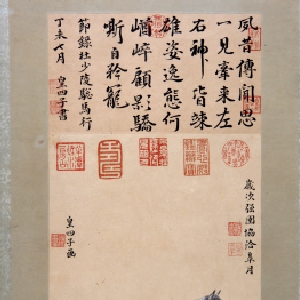 夙昔傳聞思
一見牽來左
右神皆竦
雄姿逸態何
崷崒顧影驕
嘶自矜寵
節錄杜少陵驄馬行
丁未月 皇四子書
歲次強圉協洽皋月
皇四子画